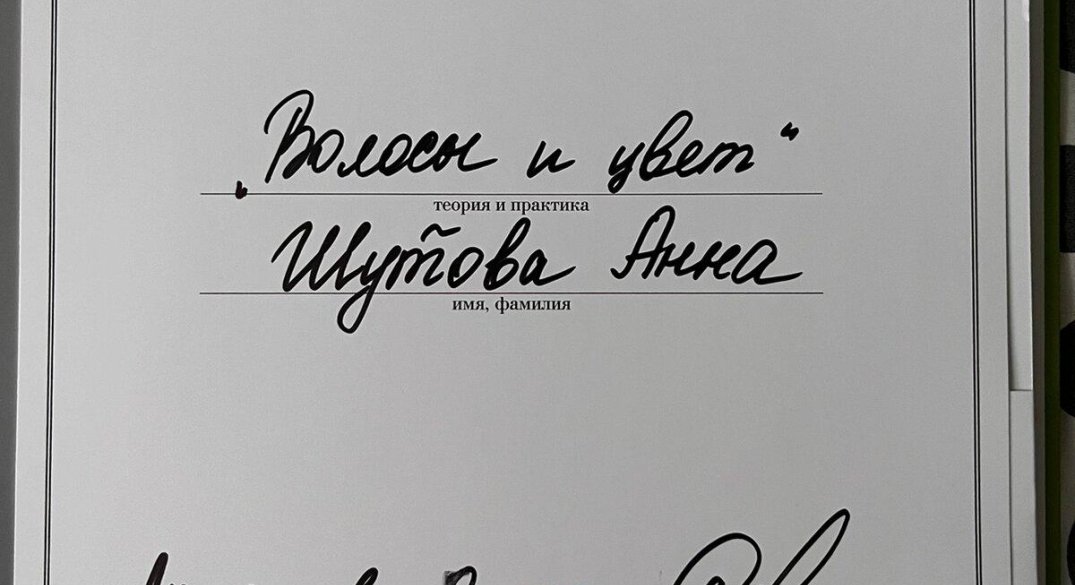 „Волосы и цвет“
теория и практика
Шутова Анна
имя, фамилия